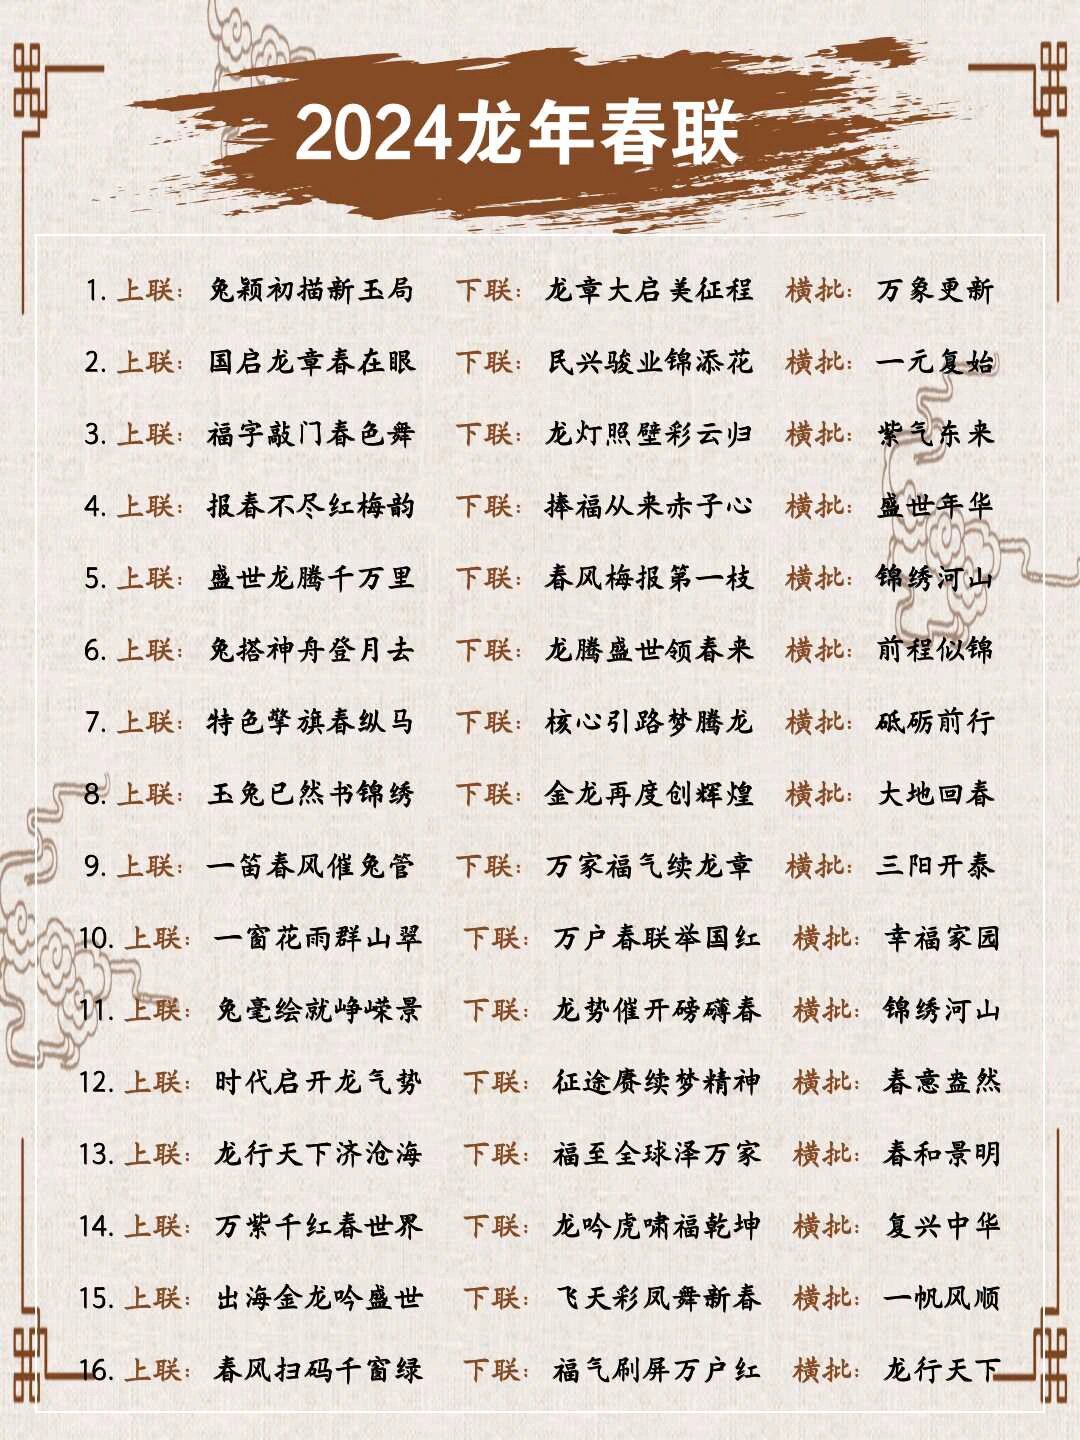 2024龙年春联
1. 上联： 兔颖初描新玉局 下联： 龙章大启美征程 横批： 万象更新
2. 上联： 国启龙章春在眼 下联： 民兴骏业锦添花 横批： 一元复始
3. 上联： 福字敲门春色舞 下联： 龙灯照壁彩云归 横批： 紫气东来
4. 上联： 报春不尽红梅韵 下联： 捧福从来赤子心 横批： 盛世年华
5. 上联： 盛世龙腾千万里 下联： 春风梅报第一枝 横批： 锦绣河山
6. 上联： 兔搭神舟登月去 下联： 龙腾盛世领春来 横批： 前程似锦
7. 上联： 特色擎旗春纵马 下联： 核心引路梦腾龙 横批： 砥砺前行
8. 上联： 玉兔已然书锦绣 下联： 金龙再度创辉煌 横批： 大地回春
9. 上联： 一笛春风催兔管 下联： 万家福气续龙章 横批： 三阳开泰
10. 上联： 一窗花雨群山翠 下联： 万户春联举国红 横批： 幸福家园
11. 上联： 兔毫绘就峥嵘景 下联： 龙势催开磅礴春 横批： 锦绣河山
12. 上联： 时代启开龙气势 下联： 征途赓续梦精神 横批： 春意盎然
13. 上联： 龙行天下济沧海 下联： 福至全球泽万家 横批： 春和景明
14. 上联： 万紫千红春世界 下联： 龙吟虎啸福乾坤 横批： 复兴中华
15. 上联： 出海金龙吟盛世 下联： 飞天彩凤舞新春 横批： 一帆风顺
16. 上联： 春风扫码千窗绿 下联： 福气刷屏万户红 横批： 龙行天下